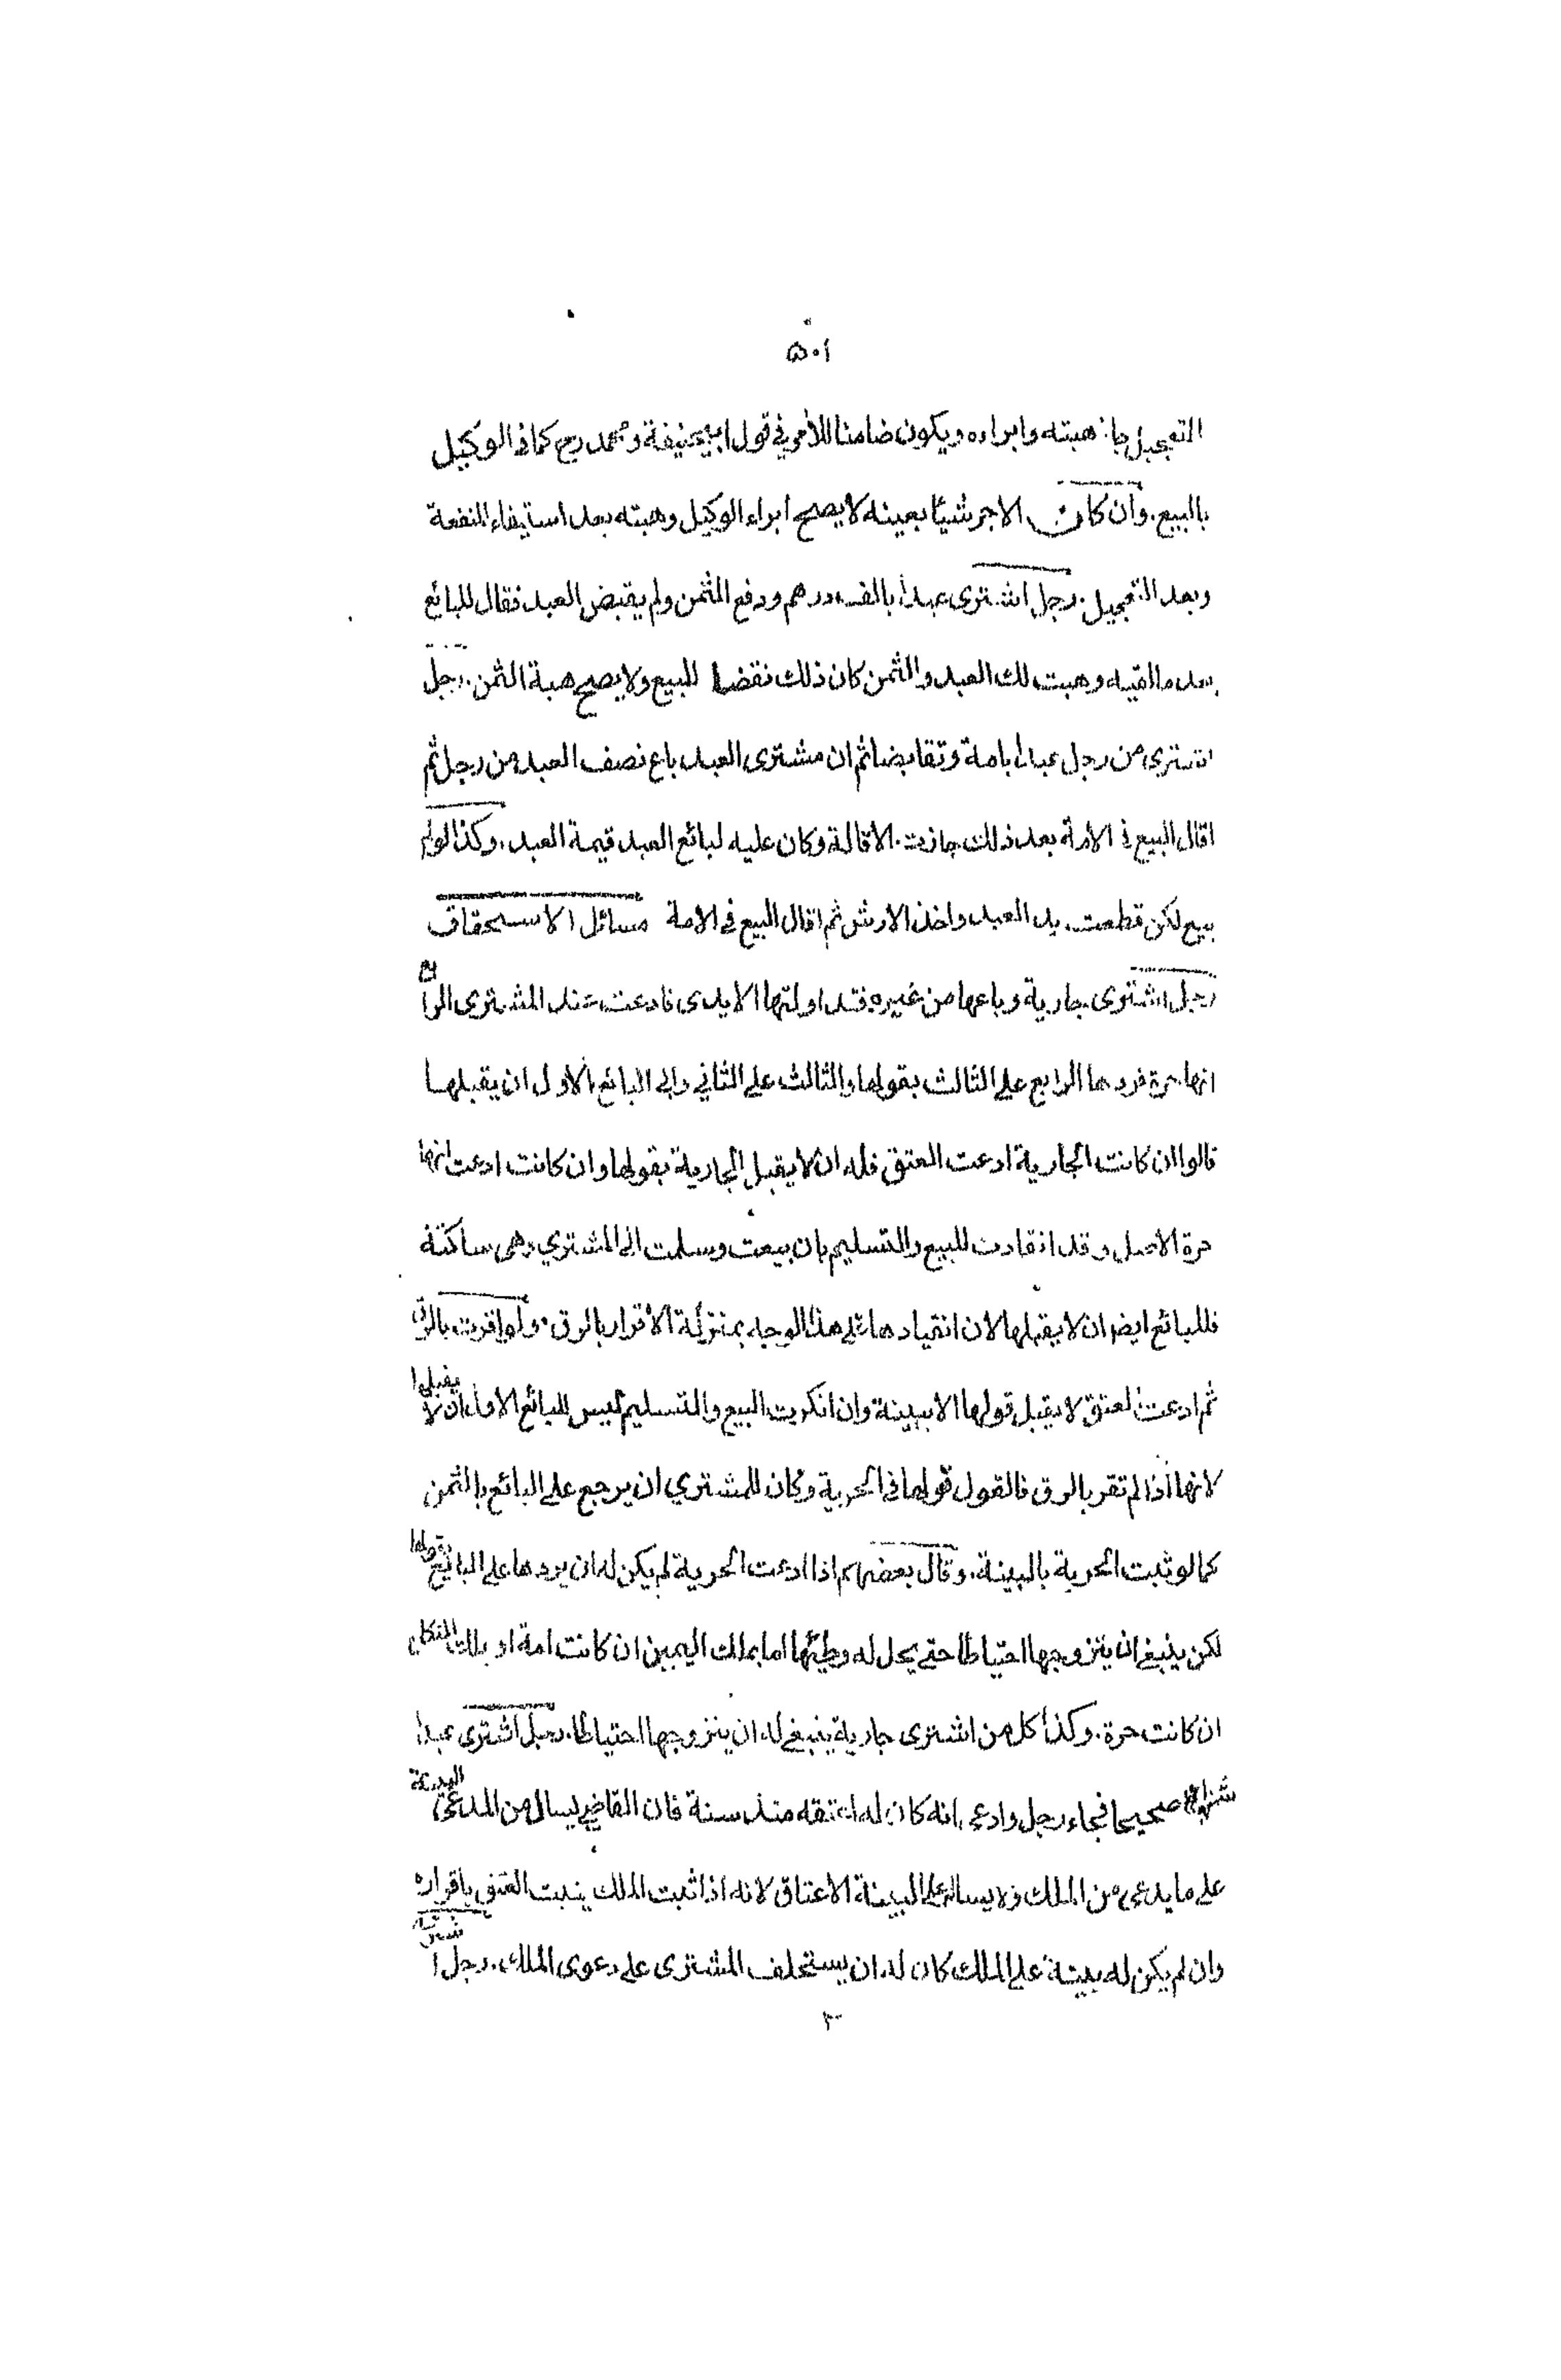 ٥٠١
التعجيل جاز هبته وابراءه ويكون ضامنا للأمر في قول ابي حنيفة ومحمد رح كما في الوكيل
بالبيع. وان كان الاجر شيئا بعينه لا يصح ابراء الوكيل وهبته بعد استيفاء المنفعة
وبعد التعجيل. رجل اشترى عبدا بالف درهم ودفع الثمن ولم يقبض العبد فقال للبائع
بعد ما لقيه وهبت لك العبد والثمن كان ذلك نقضا للبيع ولا يصح هبة الثمن. رجل
اشترى من رجل عبدا بامة وتقابضا ثم ان مشترى العبد باع نصف العبد من رجل ثم
اقال البيع في الامة بعد ذلك جازت الاقالة وكان عليه لبائع العبد قيمة العبد. وكذا لو لم
يبع لكن قطعت يد العبد واخذ الارش ثم اقال البيع في الامة مسائل الاستحقاق
رجل اشترى جارية وباعها من غيره فتداولتها الايدى فادعت عند المشترى الرابع
انها حرة فردها الرابع على الثالث بقولها والثالث على الثاني وابى البائع الاول ان يقبلها
قالوا ان كانت الجارية ادعت العتق فله ان لا يقبل الجارية بقولها وان كانت ادعت انها
حرة الاصل وقد انقادت للبيع والتسليم بان بيعت وسلمت الى المشتري وهى ساكتة
فللبائع ايضا ان لا يقبلها لان انقيادها على هذا الوجه بمنزلة الاقرار بالرق. ولو اقرت بالرق
ثم ادعت العتق لا يقبل قولها الا ببينة وان انكرت البيع والتسليم ليس للبائع الاول ان لا يقبلها
لانها اذا لم تقر بالرق فالقول قولها في الحرية وكان للمشتري ان يرجع على البائع بالثمن
كما لو ثبت الحرية بالبينة. وقال بعضهم اذا ادعت الحرية لم يكن له ان يردها على البائع بقولها
لكن ينبغي ان يتزوجها احتياطا حتى يحل له وطئها اما بملك اليمين ان كانت امة او بملك النكاح
ان كانت حرة. وكذا كل من اشترى جارية ينبغي له ان يتزوجها احتياطا. رجل اشترى عبدا
شراء صحيحا فجاء رجل وادعى انه كان له اعتقه منذ سنة فان القاضي يسال من المدعي البينة
على ما يدعى من الملك ولا يساله على البينة الاعتاق لانه اذا ثبت الملك يثبت العتق باقراره
وان لم يكن له بينة على الملك كان له ان يستحلف المشترى على دعوى الملك. رجل اشترى